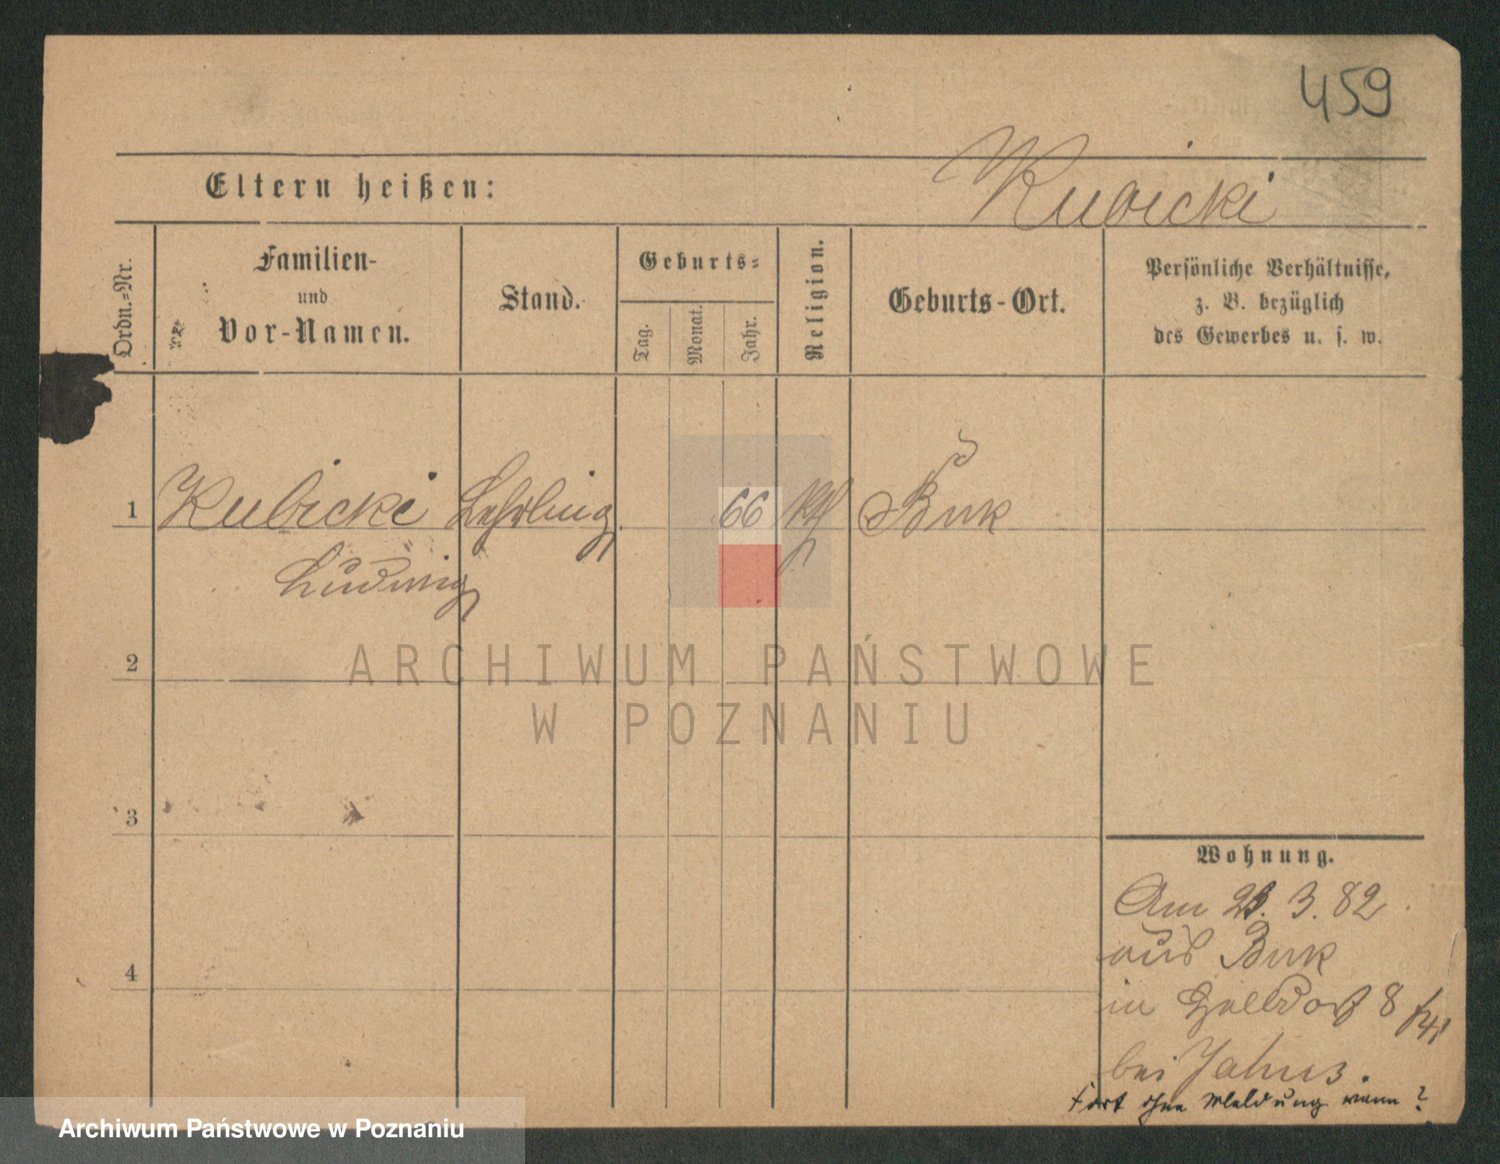 459
Eltern heißen:
Kubicki
Ordn.=Nr.
Familien-
und
Vor-Namen.
Stand.
Geburts=
Tag.
Monat.
Jahr.
Religion.
Geburts-Ort.
Persönliche Verhältnisse,
z. B. bezüglich
des Gewerbes u. s. w.
1 Kubicki Lehrling 66 kth Buk
Ludwig
2
3
4
ARCHIWUM PAŃSTWOWE
W POZNANIU
Wohnung.
Am 3. 82
aus Buk
in 8
bei Jahns.
Fort ohne Meldung wann?
Archiwum Państwowe w Poznaniu